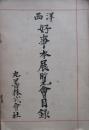 西洋
好事本展覧会目録
丸善株式會社